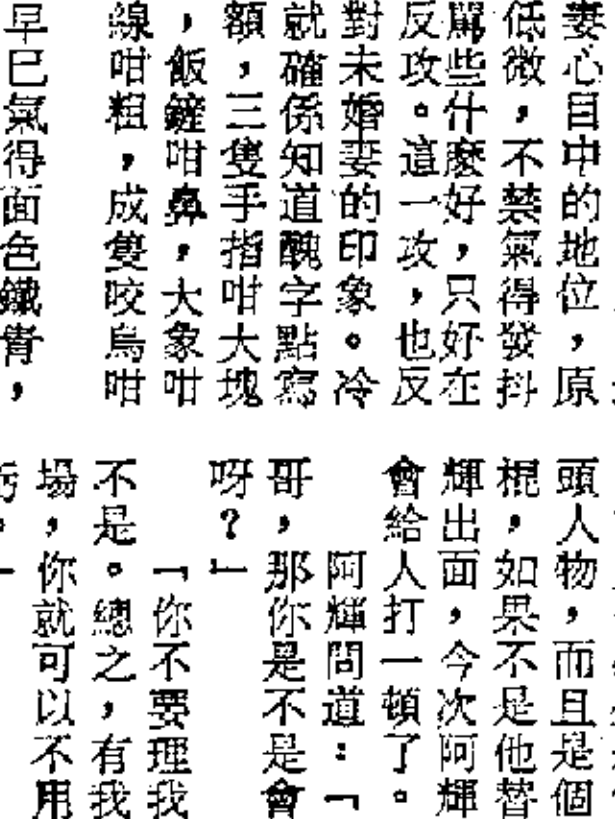 妻心目中的地位，原
低微，不禁氣得發抖
罵些什麽好，只好在
反攻。這一攻，也反
對未婚妻的印象。冷
就確係知道醜字點寫
額，三隻手指咁大塊
，飯鏟咁鼻，大象咁
線咁粗，成隻咬鳥咁
早已氣得面色鐵青，
頭人物，而且是個
棍，如果不是他替
輝出面，今次阿輝
會給人打一頓了。
阿輝問道：「
哥，那你是不是會
呀？」
「你不要理我
不是。總之，有我
場，你就可以不用